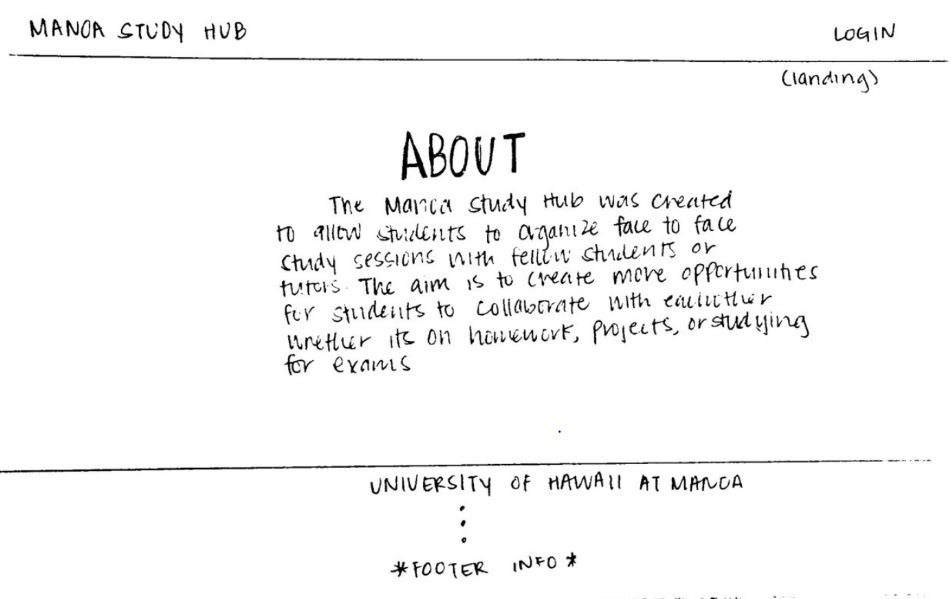 MANOA STUDY HUB
LOGIN
(landing)
ABOUT
The Manoa Study Hub was created
to allow students to organize face to face
study sessions with fellow students or
tutors. The aim is to create more opportunities
for students to collaborate with eachother
whether its on homework, projects, or studying
for exams
UNIVERSITY OF HAWAII AT MANOA
*FOOTER INFO*